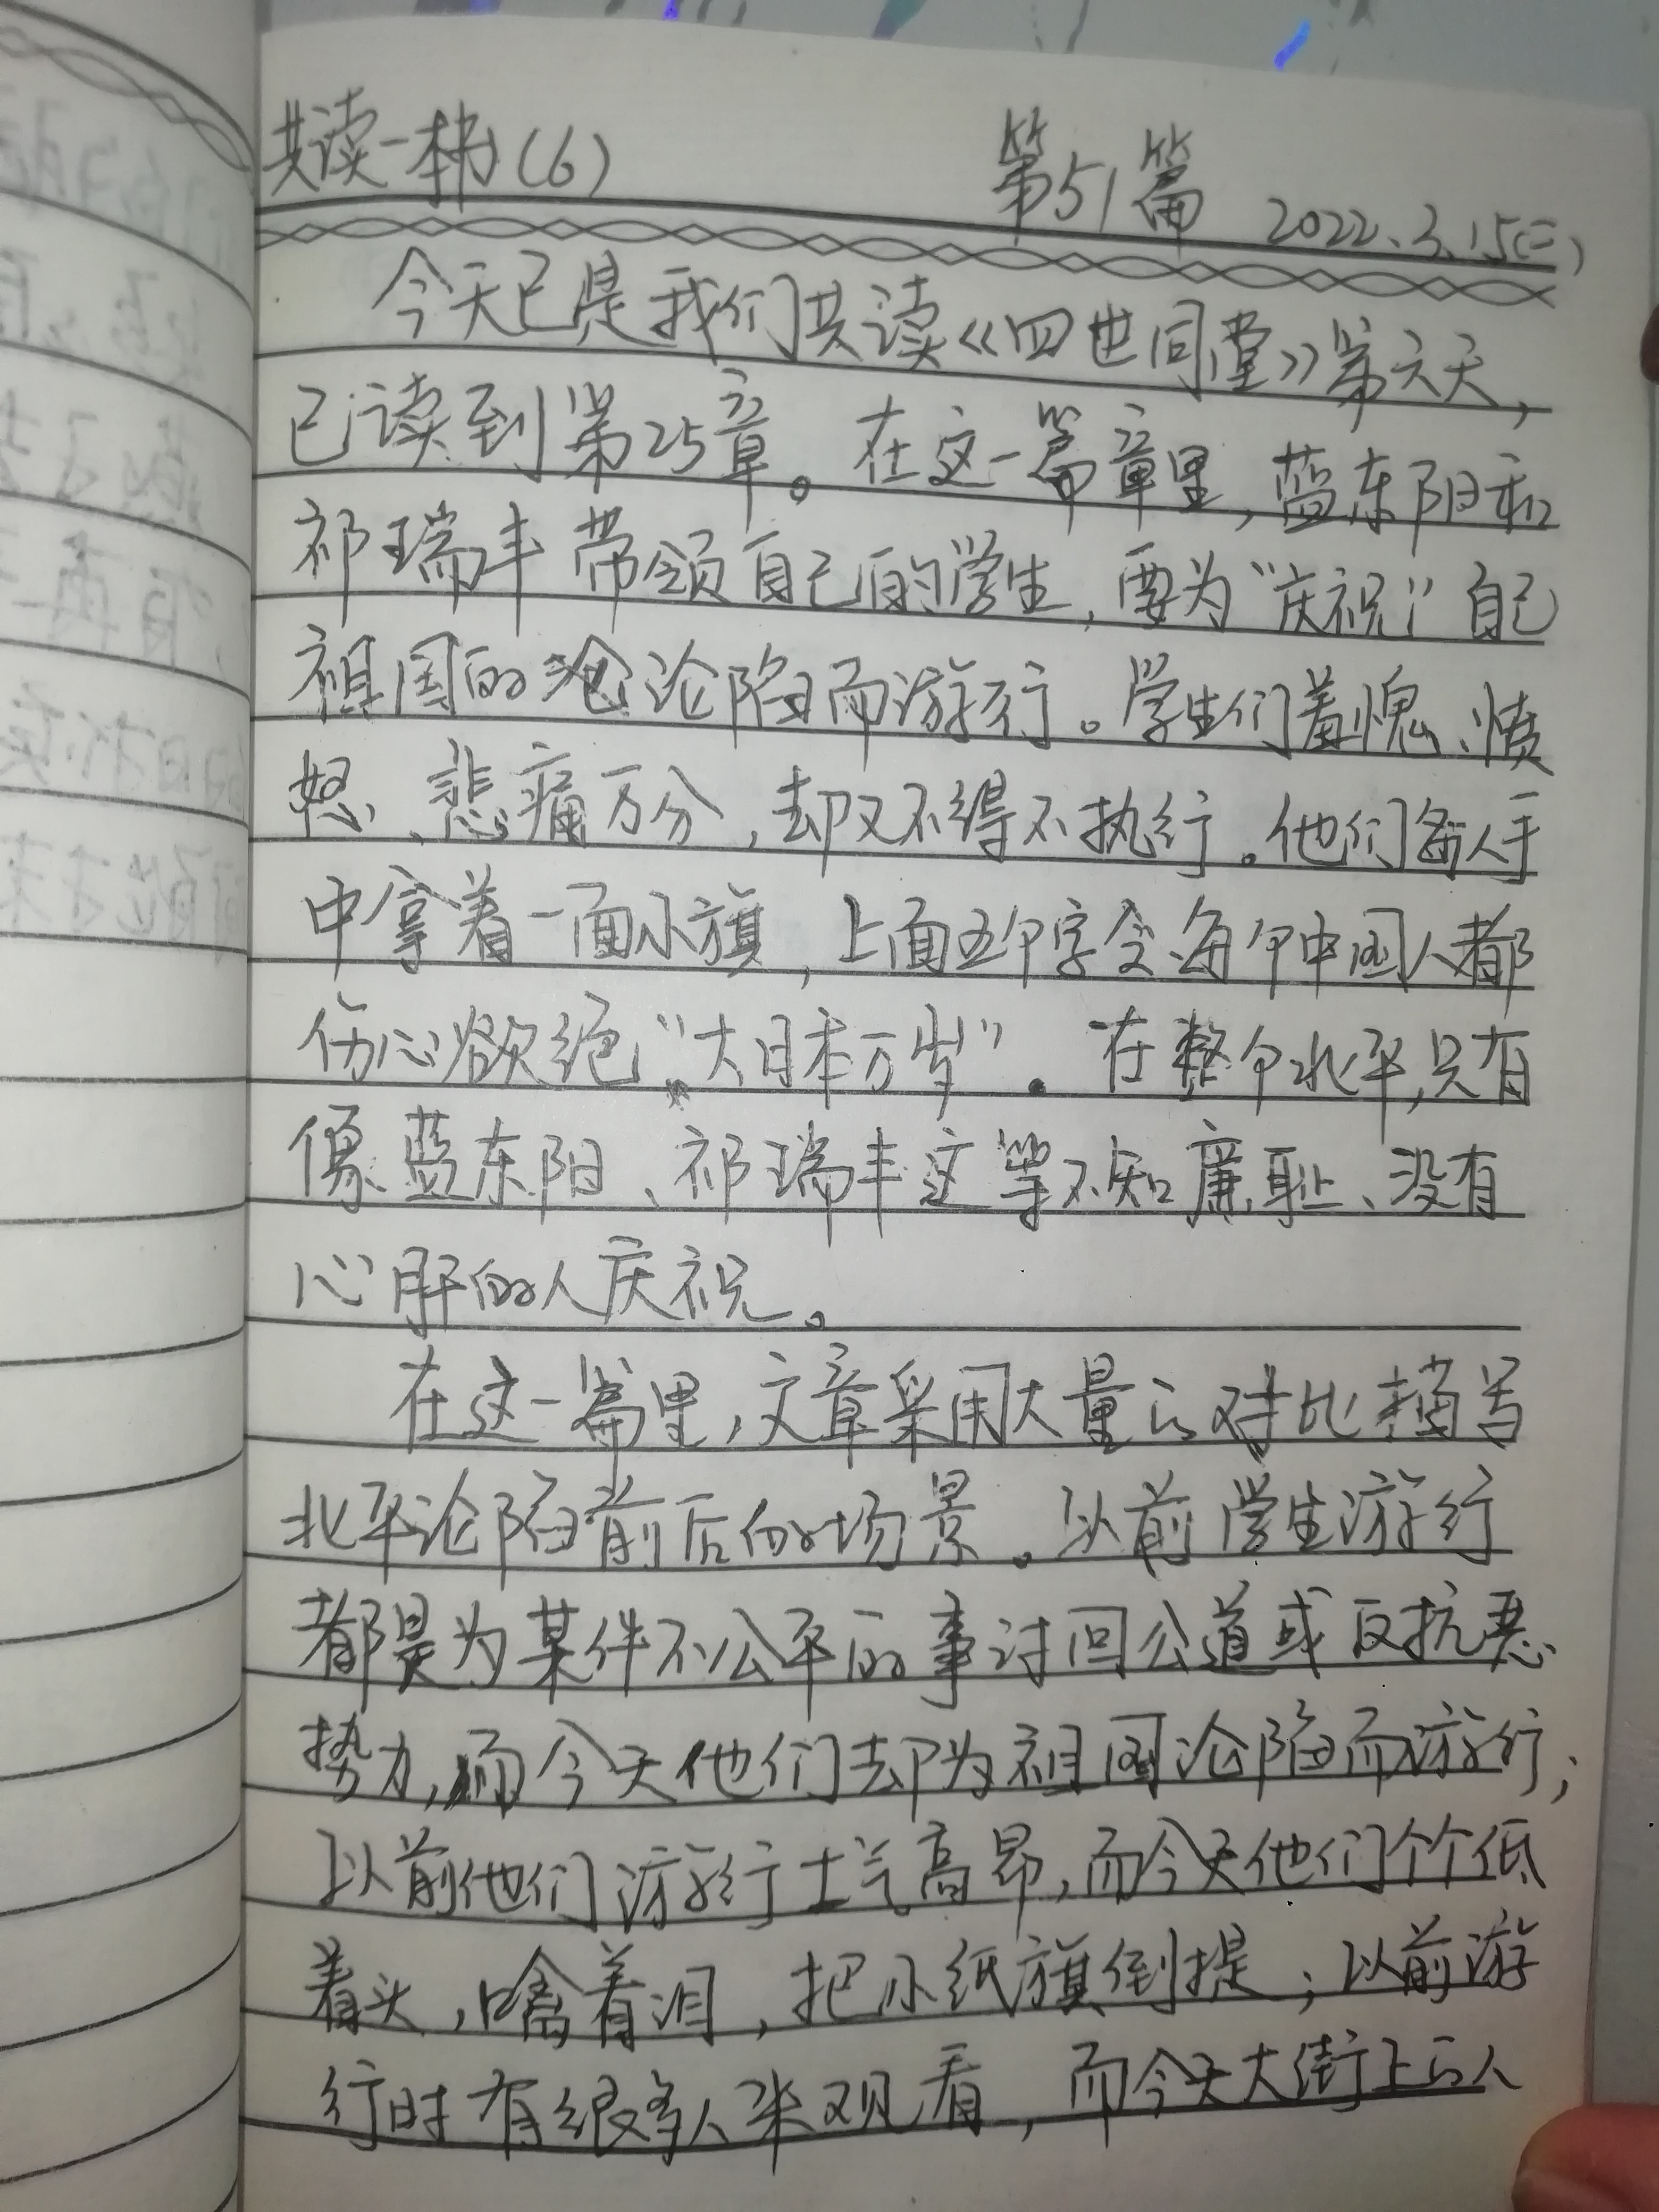 共读一本书(6)
第51篇 2022.3.15(二)
今天已是我们共读《四世同堂》第六天，
已读到第25章。在这一篇章里，蓝东阳和
祁瑞丰带领自己的学生，要为“庆祝”自己
祖国的沦陷而游行。学生们羞愧、愤
怒、悲痛万分，却又不得不执行。他们每人手
中拿着一面小旗，上面五个字令每个中国人都
伤心欲绝“大日本万岁”。在整个北平，只有
像蓝东阳、祁瑞丰这等不知廉耻、没有
心肝的人庆祝。
在这一篇里，文章采用大量的对比描写
北平沦陷前后的场景。以前学生游行
都是为某件不公平的事讨回公道或反抗恶
势力，而今天他们却为祖国沦陷而游行；
以前他们游行士气高昂，而今天他们个个低
着头，噙着泪，把小纸旗倒提；以前游
行时有很多人来观看，而今天大街上的人